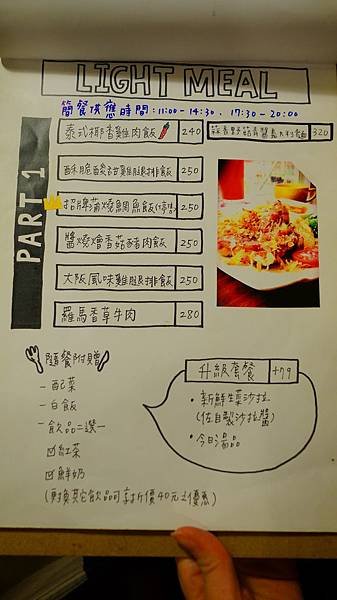 LIGHT MEAL
簡餐供應時間:11:00-14:30. 17:30-20:00
PART 1
泰式椰香雞肉飯 240
酥脆酸甜雞腿排飯 250
招牌蒲燒鯛魚飯(停售) 250
醬燒燴香菇豬肉飯 250
大阪風味雞腿排飯 250
羅馬香草牛肉 280
蒜香野菇青醬義大利麵 320
隨餐附贈
-配菜
-白飯
-飲品二選一
☑紅茶
☑鮮奶
(更換其它飲品可享折價40元之優惠)
升級套餐 +79
•新鮮生菜沙拉
(佐自製沙拉醬)
•今日湯品